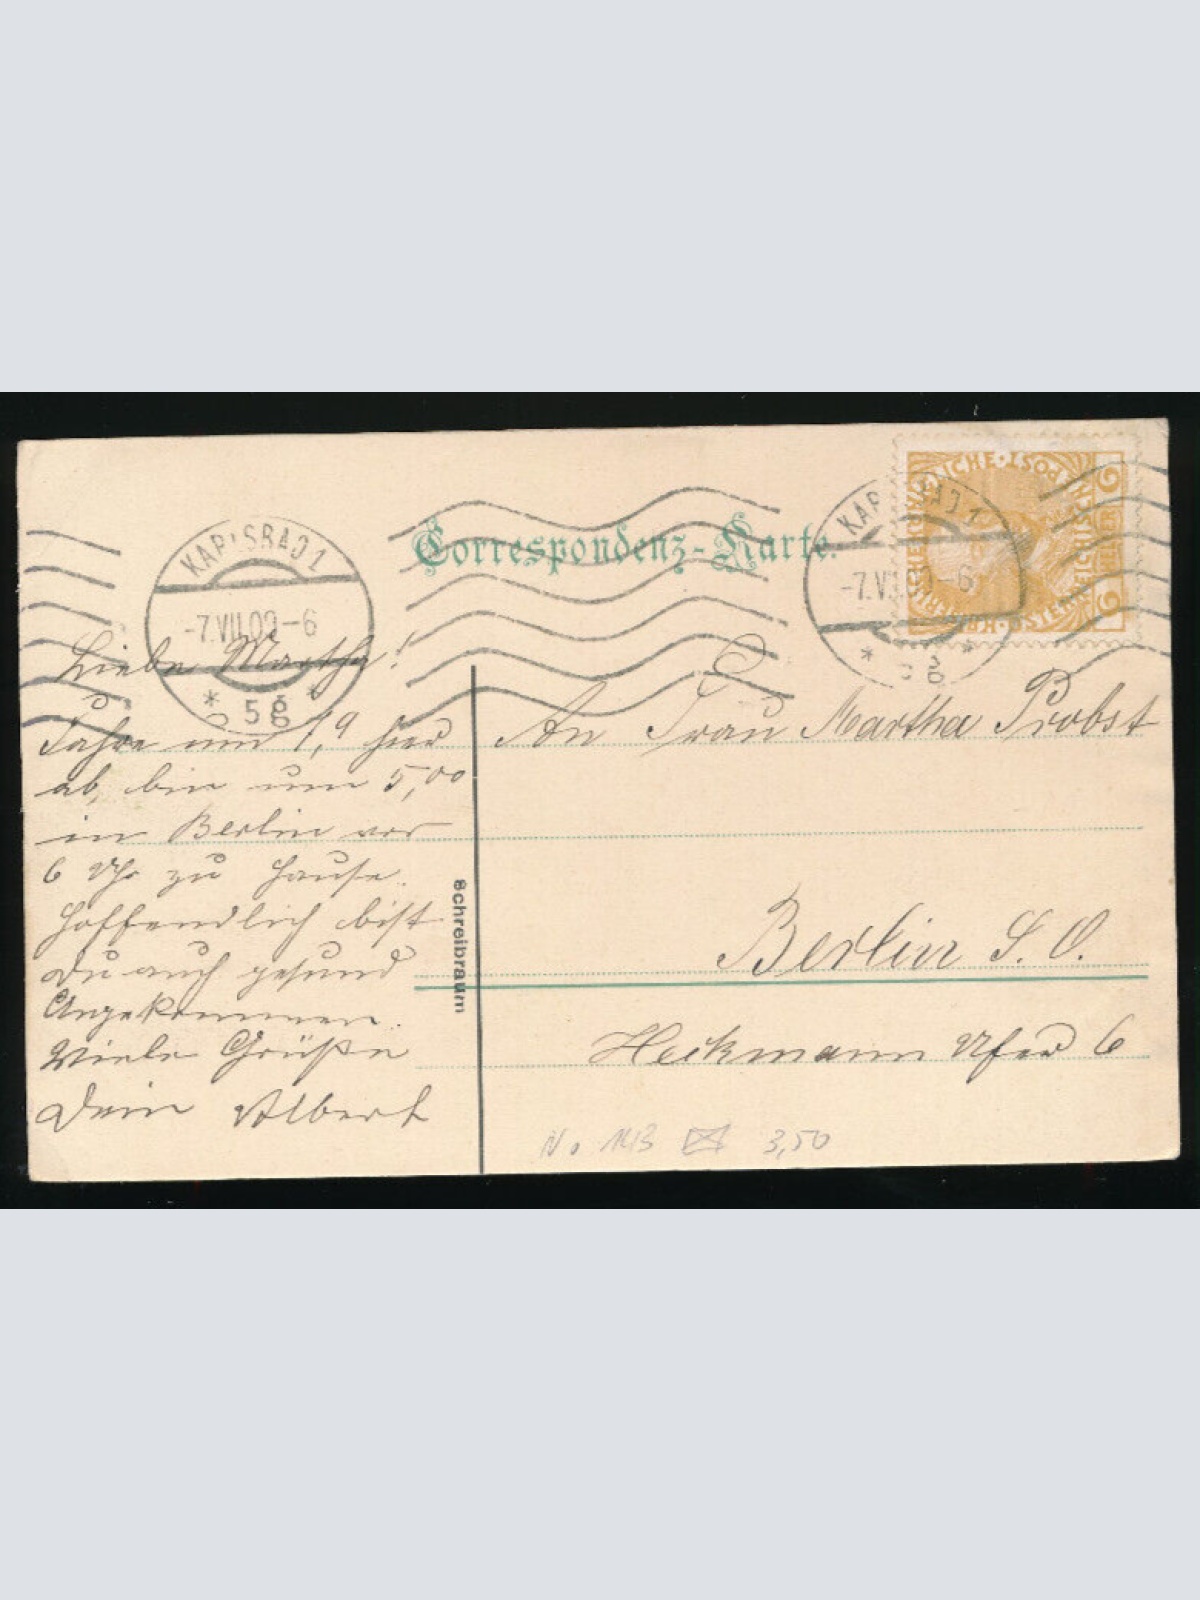 Correspondenz-Karte.
KARLSBAD 1
-7.VII.09-6
* 5g *
KARLSBAD 1
-7.VII.09-6
* 5g *
KAISERLICHE KÖNIGLICHE ÖSTERREICHISCHE POST
2 HELLER 2
Liebe Martha!
Fahre um 1,9 hier
ab, bin um 5,00
in Berlin vor
6 Uhr zu Hause.
Hoffendlich bist
Du auch gesund
Angekommen.
Viele Grüße
Dein Albert
Schreibraum
An Frau Martha Probst
Berlin S.O.
Heckmann Ufer 6
No 143 3,50